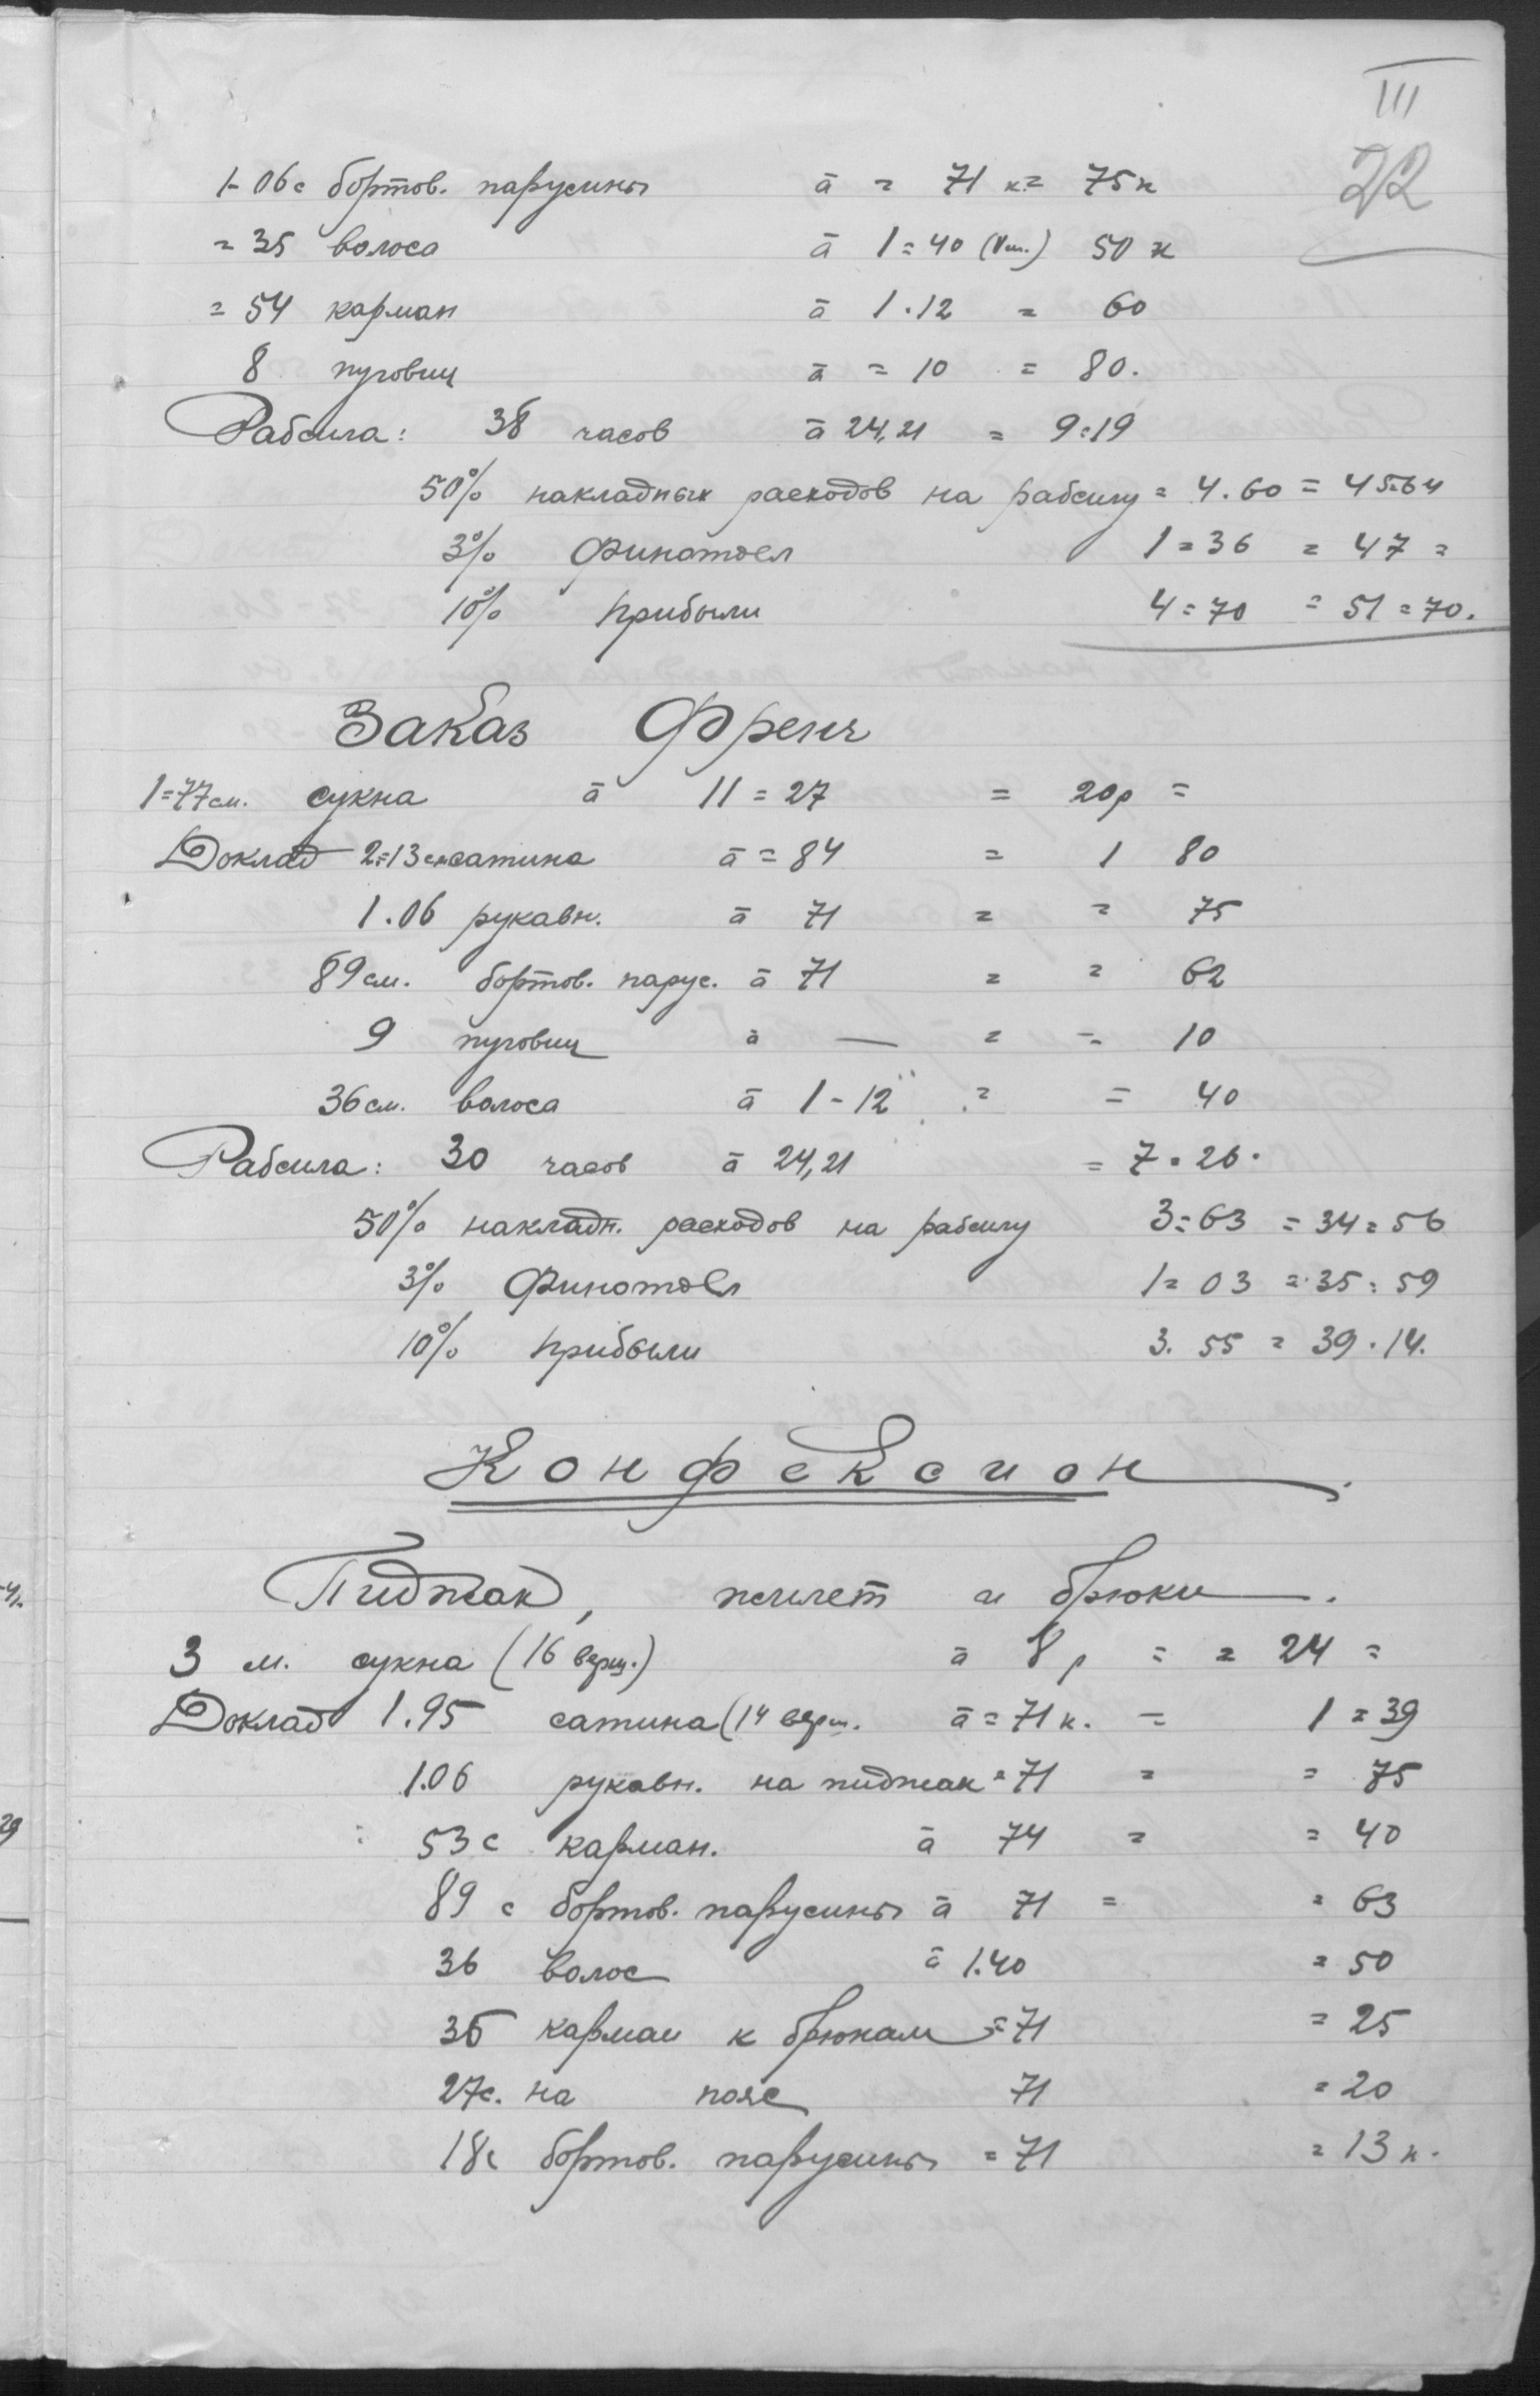 III
22
1-06с бортов. парусины ā = 71 к = 75к
= 35 волоса ā 1=40 50 к
= 54 карман ā 1.12 = 60
8 пуговиц ā = 10 = 80.
Рабсила: 38 часов ā 24,21 = 9=19
50% накладных расходов на рабсилу = 4.60 = 45=64
3% Финотдел 1=36 = 47 =
10% прибыли 4=70 = 51=70.
Заказ Френч
1=77см. сукна ā 11=27 = 20р =
Доклад 2=13см сатина ā = 84 = 1 80
1.06 рукавн. ā 71 = = 75
89см. бортов. парус. ā 71 = = 62
9 пуговиц ā — = = 10
36см. волоса ā 1-12 = = 40
Рабсила: 30 часов ā 24,21 = 7=26.
50% накладн. расходов на рабсилу 3=63 = 34=56
3% Финотдел 1=03 = 35=59
10% прибыли 3.55 = 39.14.
Конфексион
Пиджак, жилет и брюки.
3 м. сукна (16 верш.) ā 8р = = 24 =
Доклад 1.95 сатина (14 верш. ā = 71к. = 1=39
1.06 рукавн. на пиджак = 71 = = 75
53с карман. ā 74 = = 40
89с бортов. парусины ā 71 = = 63
36 волос ā 1.40 = 50
35 карман к брюкам = 71 = 25
27с. на пояс 71 = 20
18с бортов. парусины = 71 = 13к.